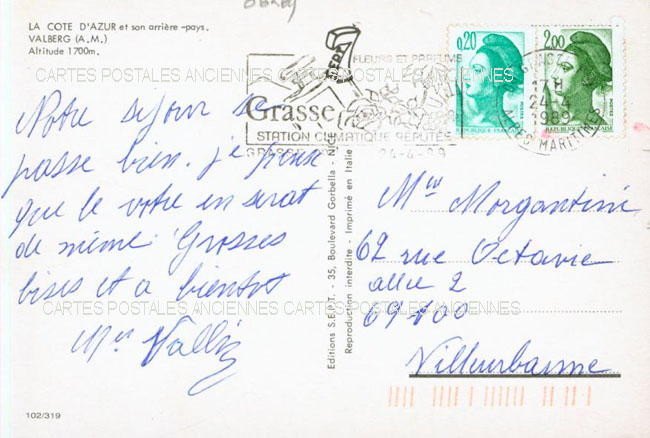 LA COTE D'AZUR et son arrière-pays.
VALBERG (A.M.)
Altitude 1700m.
0.20
2.00
POSTES
POSTES
REPUBLIQUE FRANCAISE
REPUBLIQUE FRANCAISE
FLEURS ET PARFUMS
Grasse
STATION CLIMATIQUE REPUTÉE
24-4
1989
CARTES POSTALES ANCIENNES CARTES POSTALES ANCIENNES
Notre séjour se
passe bien. je pense
que le votre en serat
de même. Grosses
bises et a bientot
Vallin
Editions S.E.P.T. - 35, Boulevard Gorbella - NICE
Reproduction interdite - Imprimé en Italie
Morgantini
62 rue Octavie
allee 2
69100
Villeurbanne
CARTES POSTALES ANCIENNES CARTES POSTALES ANCIENNES
102/319